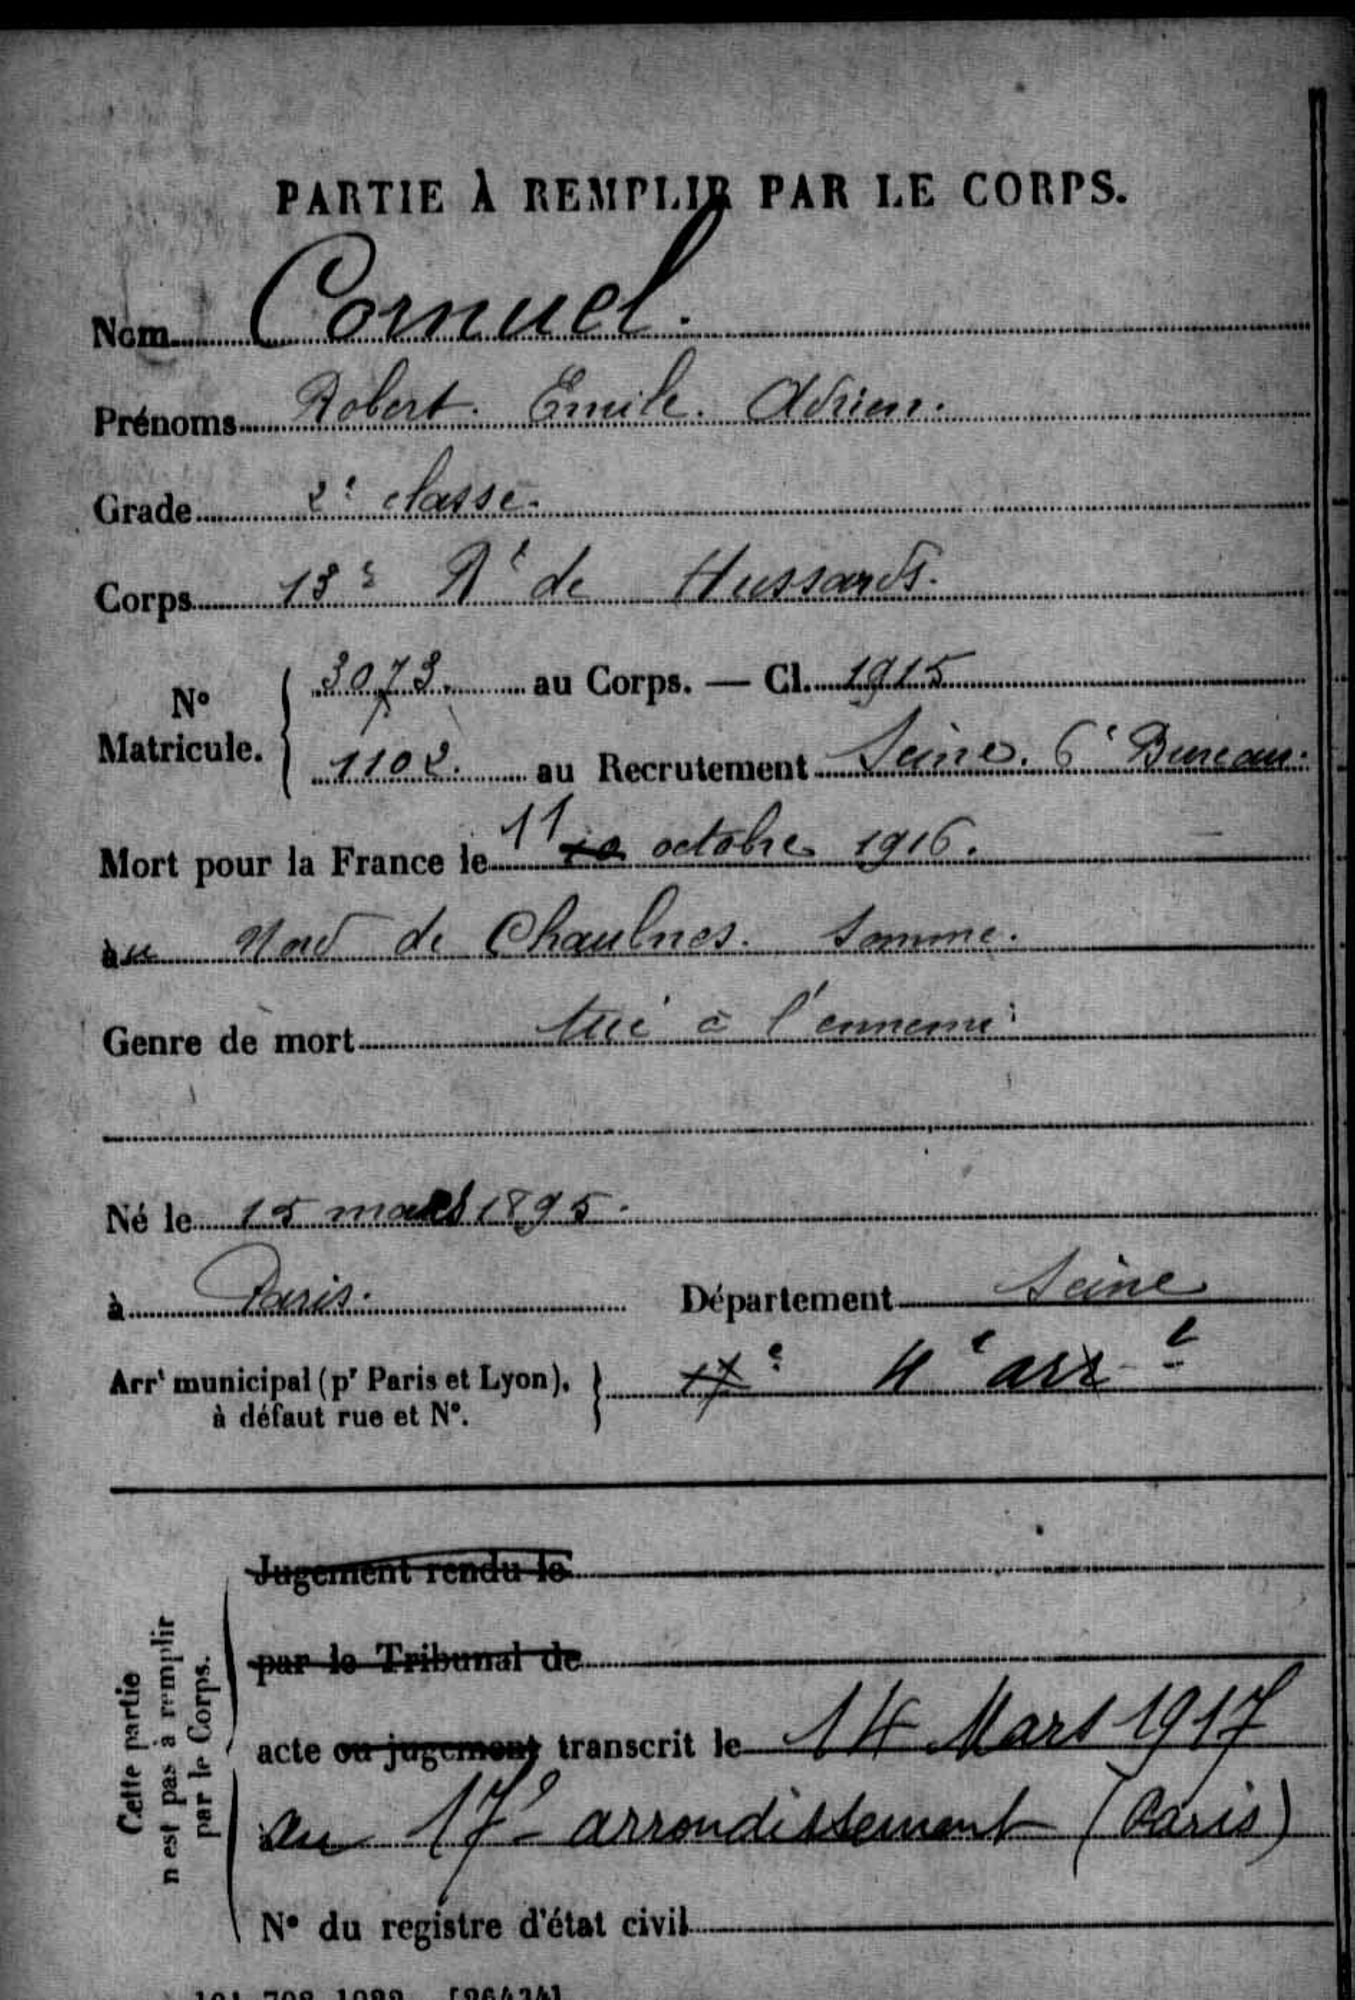 PARTIE À REMPLIR PAR LE CORPS.
Nom Cornuel.
Prénoms Robert. Emile. Adrien.
Grade 2e classe.
Corps 13e Rt de Hussards.
No Matricule. 3073. au Corps. — Cl. 1915
1102. au Recrutement Seine. 6e Bureau.
Mort pour la France le 11 10 octobre 1916.
au Nord de Chaulnes. Somme.
Genre de mort tué à l'ennemi
Né le 15 mars 1895.
à Paris. Département Seine
Arrt municipal (pr Paris et Lyon), 17e 4e arrt
à défaut rue et No.
Cette partie n'est pas à remplir par le Corps.
Jugement rendu le
par le Tribunal de
acte ou jugement transcrit le 14 Mars 1917
au 17e arrondissement (Paris)
No du registre d'état civil